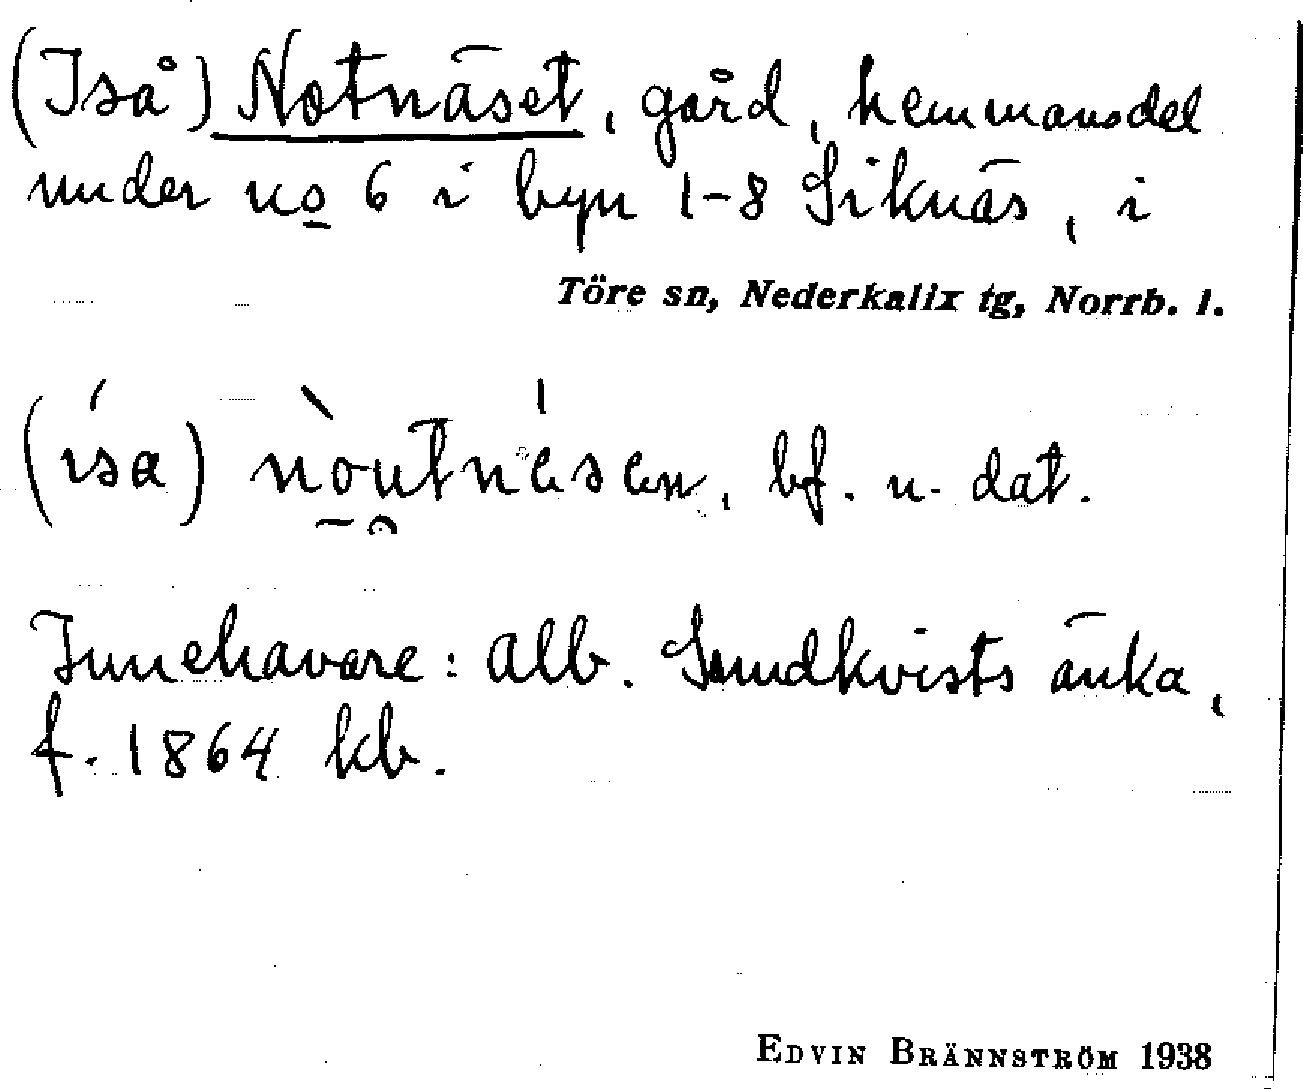 (Iså) Notnäset, gård, hemmansdel
under no 6 i byn 1-8 Siknäs, i
Töre sn, Nederkalix tg, Norrb. l.
(isa) noutnesen, bf. n. dat.
Innehavare: Alb. Sundkvists änka,
f. 1864 kb.
EDVIN BRÄNNSTRÖM 1938